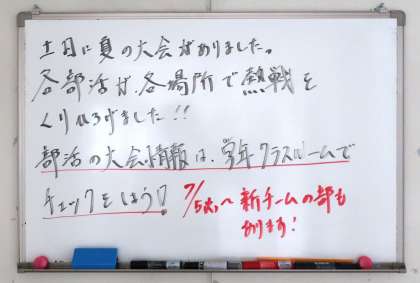 土日に夏の大会がありました。
各部活が、各場所で熱戦を
くりひろげました!!
部活の大会情報は、学年クラスルームで
チェックをしよう! 7/5(火)〜新チームの部も
あります!